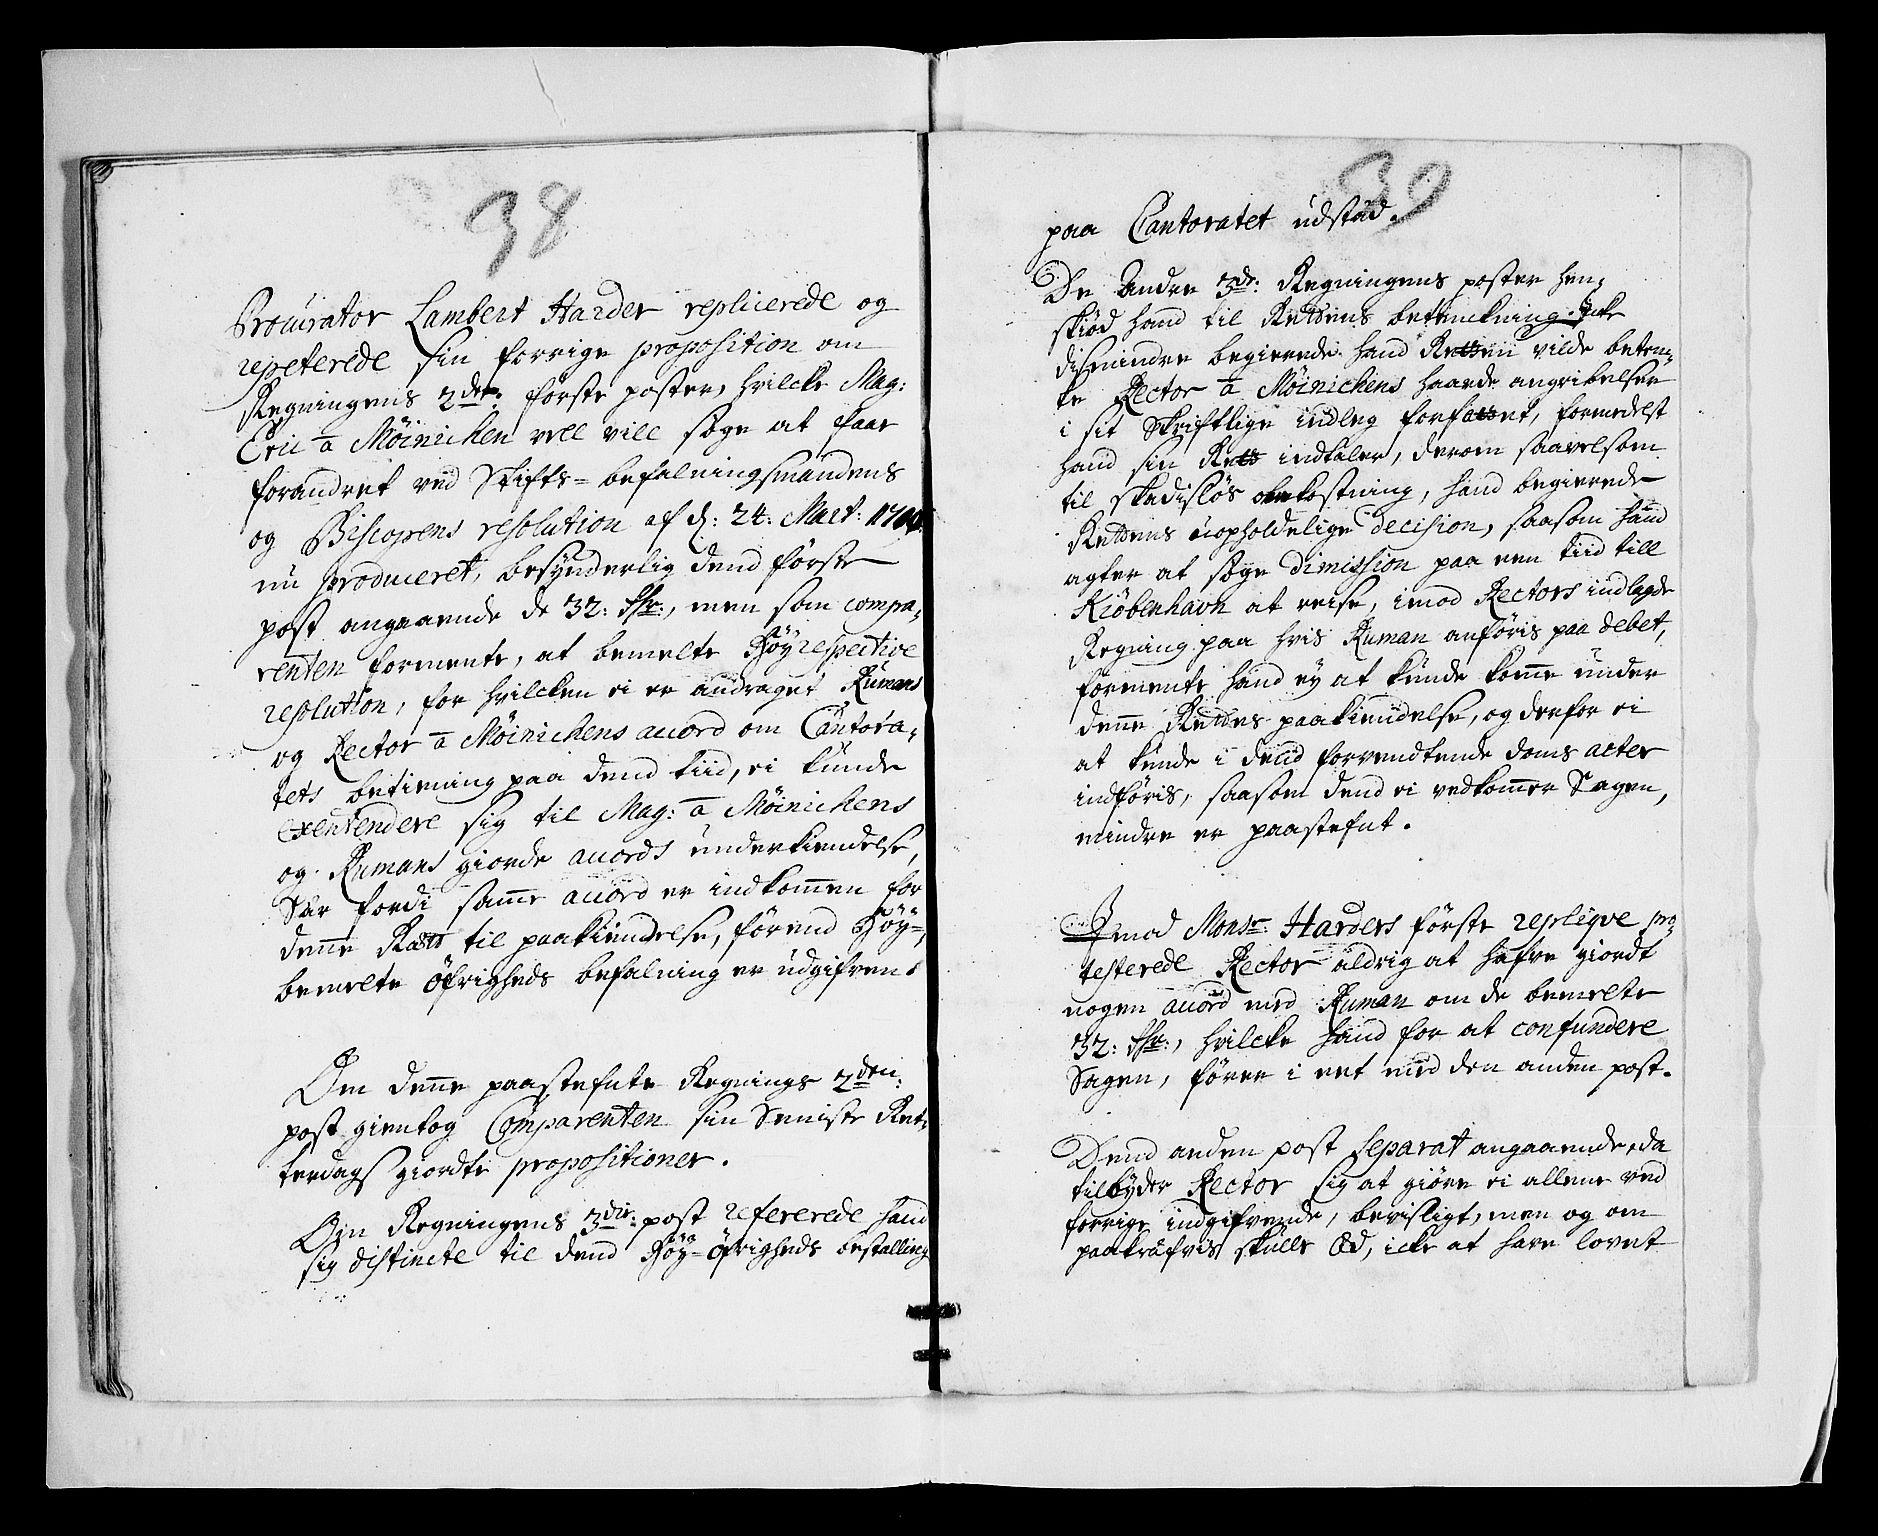 38
Procurator Lambert Harder replicerede og
repeterede sin forrige proposition om
Regningens 2de første poster, hvilcke Mag:
Eric a Möinichen vell vill søge at faae
forandret ved Stifts-befalningsmandens
og Biscopens resolution af d: 24: Mart:
nu produceret, besynderlig dend første
post angaaende de 32: sldr:, men som compa-
renten formente, at bemelte Høyrespective
resolution, for hvilcken ei er andraget Rumans
og Rector a Möinichens accord om Cantora-
tets betiening paa dend tiid, ei kunde
extendere sig til Mag: a Möinichens
og Rumans giorde accords underkiendelse,
Sær fordi samme accord er indkommen for
denne Rætt til paakiendelse, førend Høy-
bemelte Öfrigheds befalning er udgifven.
Om denne paastefnte Regnings 2den:
post gientog Comparenten sin Seniste Ret-
terdags giordte propositioner.
Om Regningens 3die: post refererede hand
sig distincte til dend Høy-Öfrigheds bestalling
39
paa Cantoratet udstæd.
De Andre 3de: Regningens poster hen-
skiød hand til Rettens betenckning. Icke
dismindre begierede hand Retten vilde beten-
ke Rector a Möinichens haarde angribelser
i sit Skriftlige indleg forfattet, formedelst
hand sin Rett indtaler, derom saavelsom
til skadisløs bekostning, hand begierede
Rettens uopholdelige decision, saasom hand
agter at søge dimission paa een tiid till
Kiöbenhavn at reise, imod Rectors indlagde
Regning paa hvis Ruman anføris paa debet,
formente hand ey at kunde komme under
denne Rettes paakiendelse, og derfor ei
at kunde i dend forventende doms acter
indføris, saasom dend ei vedkommer Sagen,
mindre er paastefnt.
Imod Monsr: Harders første repliqve pro-
testerede Rector aldrig at hafve giordt
nogen accord med Ruman om de bemelte
32: sldr:, hvilcke hand for at confundere
Sagen, fører i eet med den anden post.
Dend anden post separat angaaende, da
tilbyder Rector sig at giøre ei allene ved
forrige indgifvende, bevisligt, men og om
paakræfvis skulle Æd, icke at have lovet